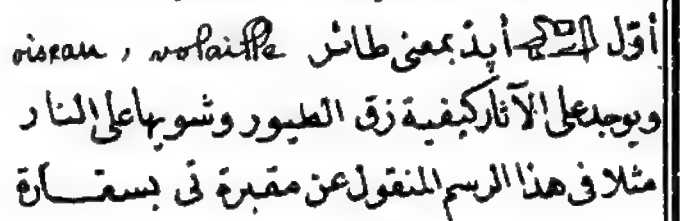 أوّل أپدّ بمعنى طائر oiseau , volaille
ويوجد على الآثار كيفية زق الطيور وشويها على النار
مثلا فى هذا الرسم المنقول عن مقبرة تى بسقارة